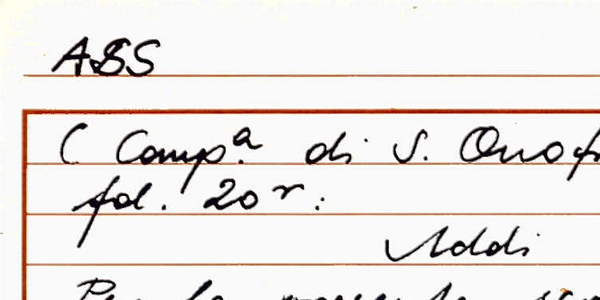 ASS
( Comp.a di S. Onof
fol. 20 r:
Addi
Per la